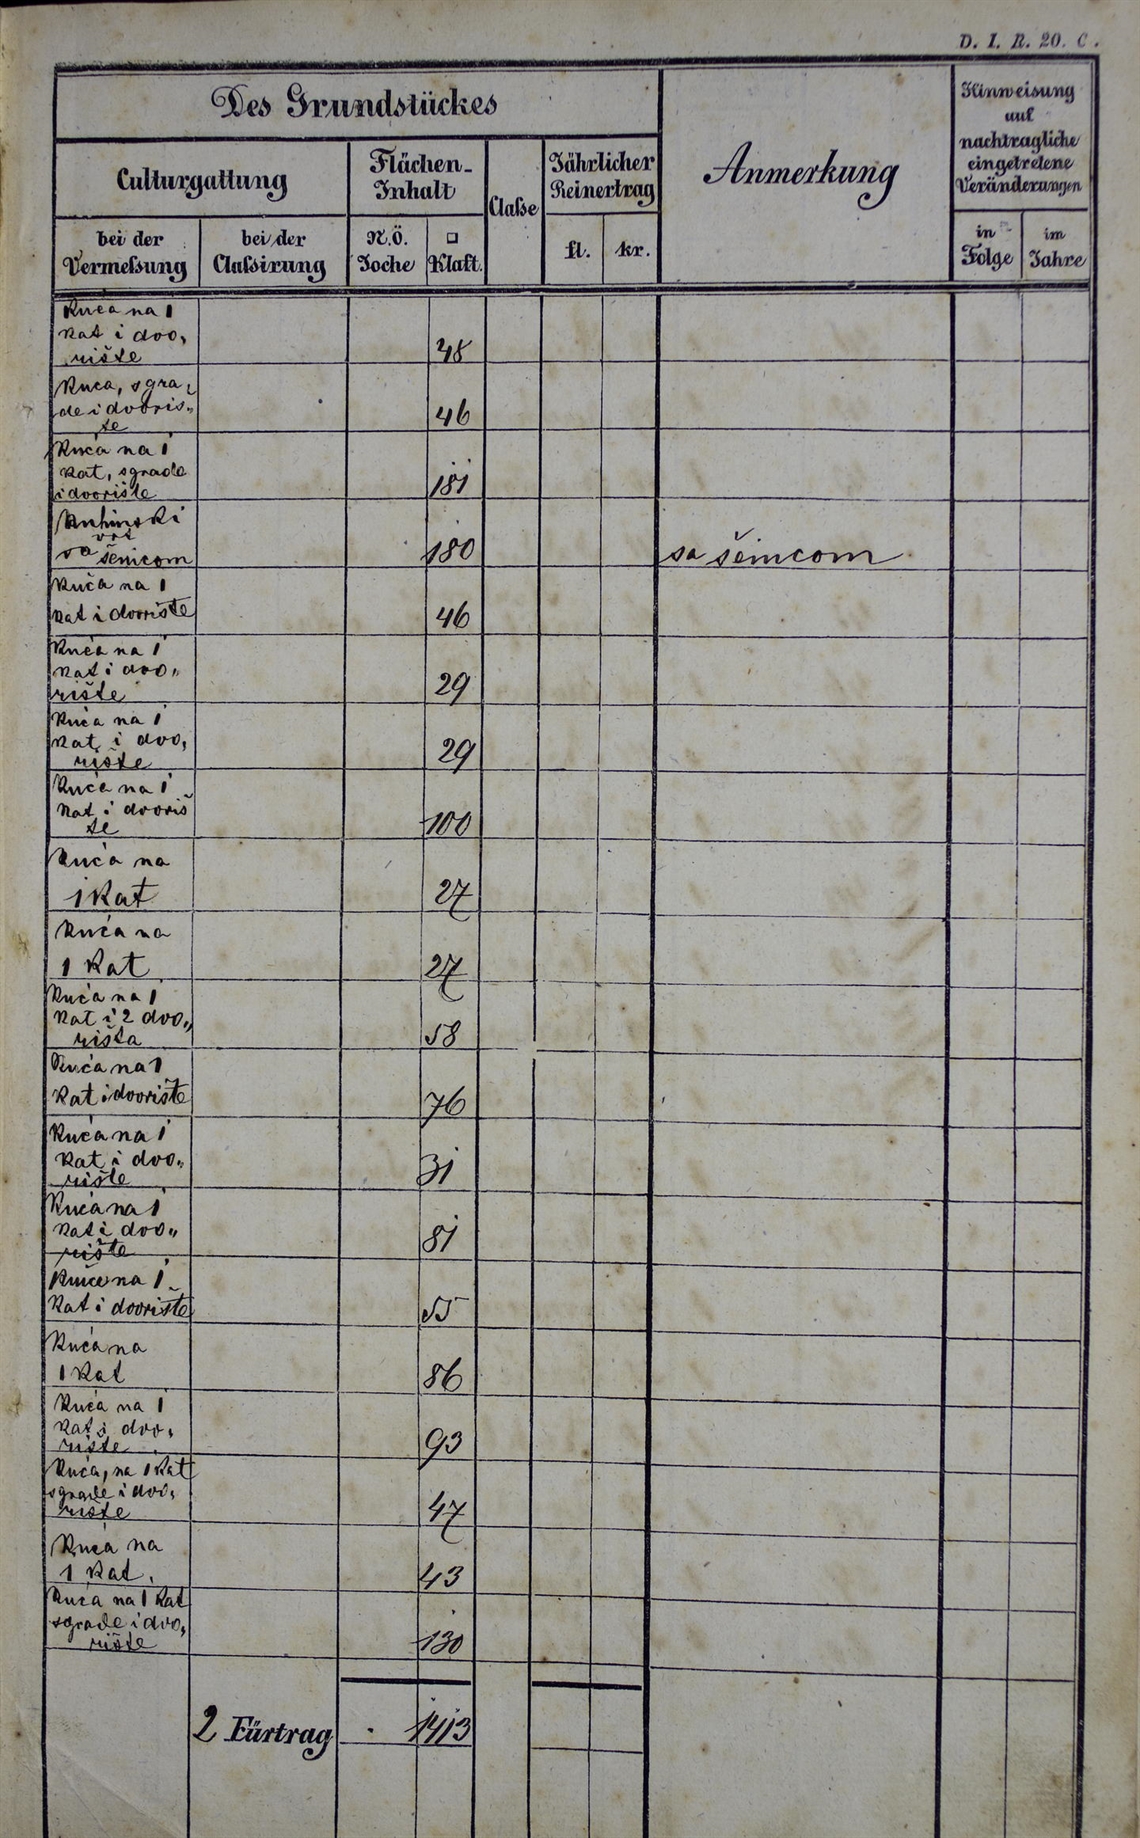 D. I. R. 20. C.
Des Grundstückes
Anmerkung
Hinweisung
auf
nachträgliche
eingetretene
Veränderungen
Culturgattung
Flächen-
Inhalt
Claße
Jährlicher
Reinertrag
bei der
Vermeßung
bei der
Claßirung
N.Ö.
Joche
□
Klaft.
fl.
kr.
in
Folge
im
Jahre
Kuća na 1
kat i dvo„
rište
48
Kuća, sgra„
de i dvoriš„
te
46
Kuća na 1
kat, sgrade
i dvorište
181
Kuhinski
vrt
sa šenicom
180
sa šenicom
Kuća na 1
kat i dvorište
46
Kuća na 1
kat i dvo„
rište
29
Kuća na 1
kat i dvo„
rište
29
Kuća na 1
kat i dvoriš
te
100
Kuća na
1 kat
27
Kuća na
1 kat
27
Kuća na 1
kat i 2 dvo„
rišta
58
Kuća na 1
kat i dvorište
76
Kuća na 1
kat i dvo„
rište
31
Kuća na 1
kat i dvo„
rište
81
Kuća na 1
kat i dvorište
55
Kuća na
1 kat
86
Kuća na 1
kat i dvo„
rište
93
Kuća, na 1 kat
sgrade i dvo„
rište
47
Kuća na
1 kat.
43
Kuća na 1 kat
sgrade i dvo„
rište
130
2 Fürtrag . 1413